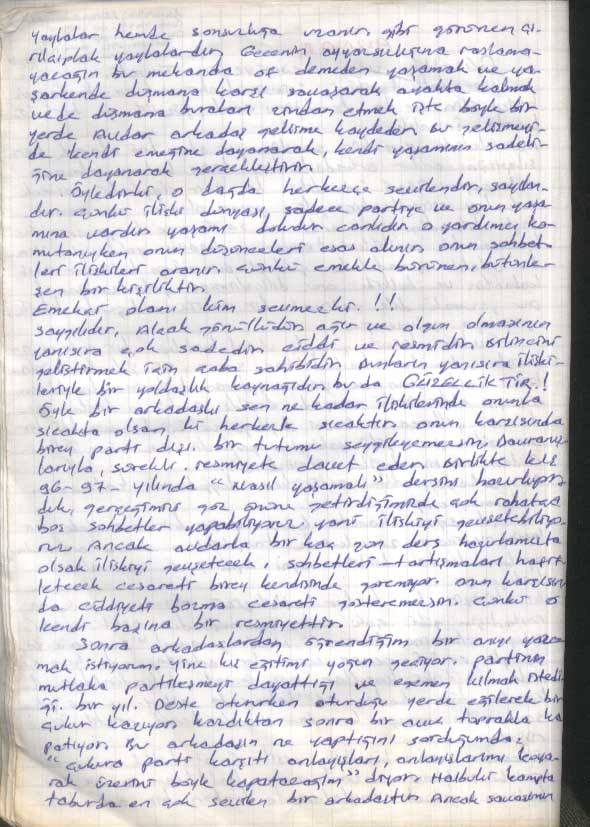 Yaylalar hemde sonsuzluğa uzanır gibi görünen çı-
rılçıplak yaylalardır. Gecenin ayyarsızlığına raslama-
yacağın bu mekanda of demeden yaşamak ve ya-
şarkende düşmana karşı savaşarak ayakta kalmak
vede düşmana buraları zindan etmek işte böyle bir
yerde Avdar arkadaş gelişme kaydeder. Bu gelişmeyi-
de kendi emeğine dayanarak, kendi yaşamının sadeli-
ğine dayanarak gerçekleştirir.
Öyledirki, o dağda herkesçe sevilendir, sayılan-
dır. Çünkü ilişki dünyası, sadece partiye ve onun yaşa-
mına vardır yaşamı doludur canlıdır. O yardımcı ko-
mutanıyken onun düşünceleri esas alınır. onun sohbet-
leri ilişkileri aranır. Çünkü emekle bürünen, bütünle-
şen bir kişiliktir.
Emekçi olanı kim sevmezki. !!
Saygılıdır, Alçak gönüllüdür ağır ve olgun olmasının
yanısıra çok sadedir. Ciddi ve resmidir. Bilincini
geliştirmek için çaba sahibidir. Bunların yanısıra ilişki-
leriyle bir yoldaşlık kaynağıdır. bu da GÜZELLİKTİR.!
Öyle bir arkadaşki sen ne kadar ilişkilerinde onunla
sıcakta olsan ki herkesle sıcaktır. onun karşısında
birey parti dışı. bir tutumu sergileyemezsin. Davranış-
larıyla, sürekli. resmiyete davet eder. Birlikte
96-97- yılında "Nasıl yaşamalı" dersini hazırlıyor-
duk, gerçeğimizi göz önüne getirdiğimizde çok rahatça
boş sohbetler yapabiliyoruz yani ilişkiyi gevşetebiliyo-
ruz Ancak Avdarla bir kaç gün ders hazırlamakta
olsak ilişkiyi gevşetecek, sohbetleri - tartışmaları hafif-
letecek cesareti birey kendisinde göremiyor. onun karşısın-
da ciddiyeti bozma cesareti gösteremezsin. Çünkü o
kendi başına bir resmiyettir.
Sonra arkadaşlardan öğrendiğim bir anıyı yaz-
mak istiyorum. Yine kış eğitimi yoğun geçiyor. partinin
mutlaka partileşmeyi dayattığı ve egemen kılmak istedi-
ği. bir yıl. Deste otururken oturduğu yerde eğilerek bir
çukur kazıyor. kazdıktan sonra bir avuç toprakla ka-
patıyor. Bu arkadaşın ne yaptığını sorduğumda.
"çukura parti karşıtı anlayışları, anlayışlarımı koya-
rak üzerini böyle kapatacağım" diyor. Halbuki kampta
taburda en çok sevilen bir arkadaştır. Ancak savaşımın